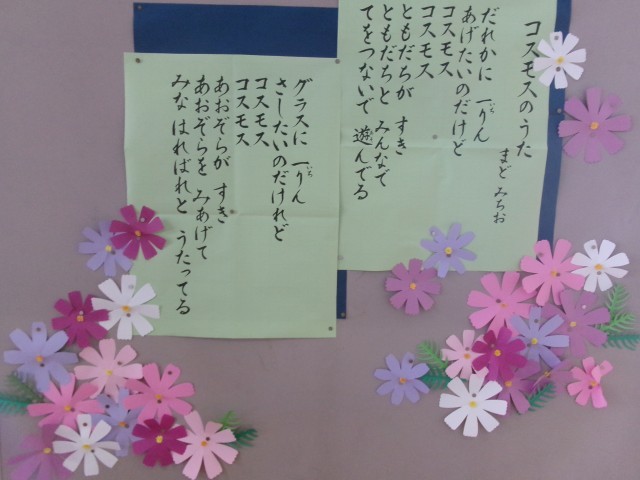 コスモスのうた
まど みちお
だれかに 一りん
あげたいのだけど
コスモス
コスモス
ともだちが すき
ともだちと みんなで
てをつないで 遊んでる
グラスに 一りん
さしたいのだけれど
コスモス
コスモス
あおぞらが すき
あおぞらを みあげて
みな はればれと うたってる